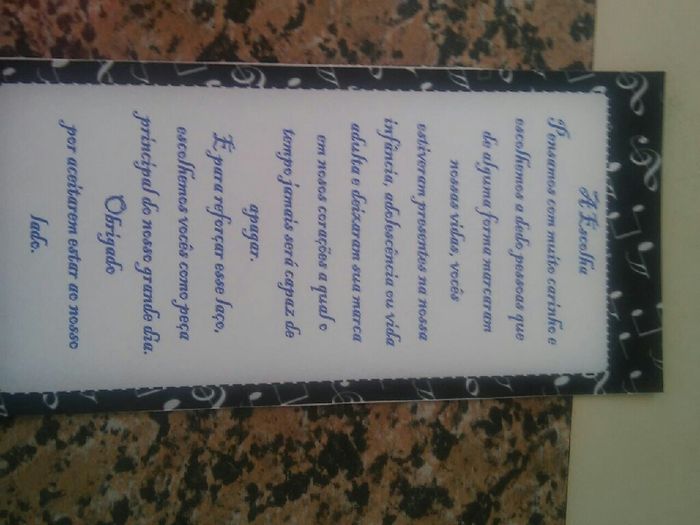 A Escolha
Pensamos com muito carinho e
escolhemos a dedo, pessoas que
de alguma forma marcaram
nossas vidas, vocês
estiveram presentes na nossa
infância, adolescência ou vida
adulta e deixaram sua marca
em nosos corações a qual o
tempo jamais será capaz de
apagar.
E para reforçar esse laço,
escolhemos vocês como peça
principal do nosso grande dia.
Obrigado
por aceitarem estar ao nosso
lado.